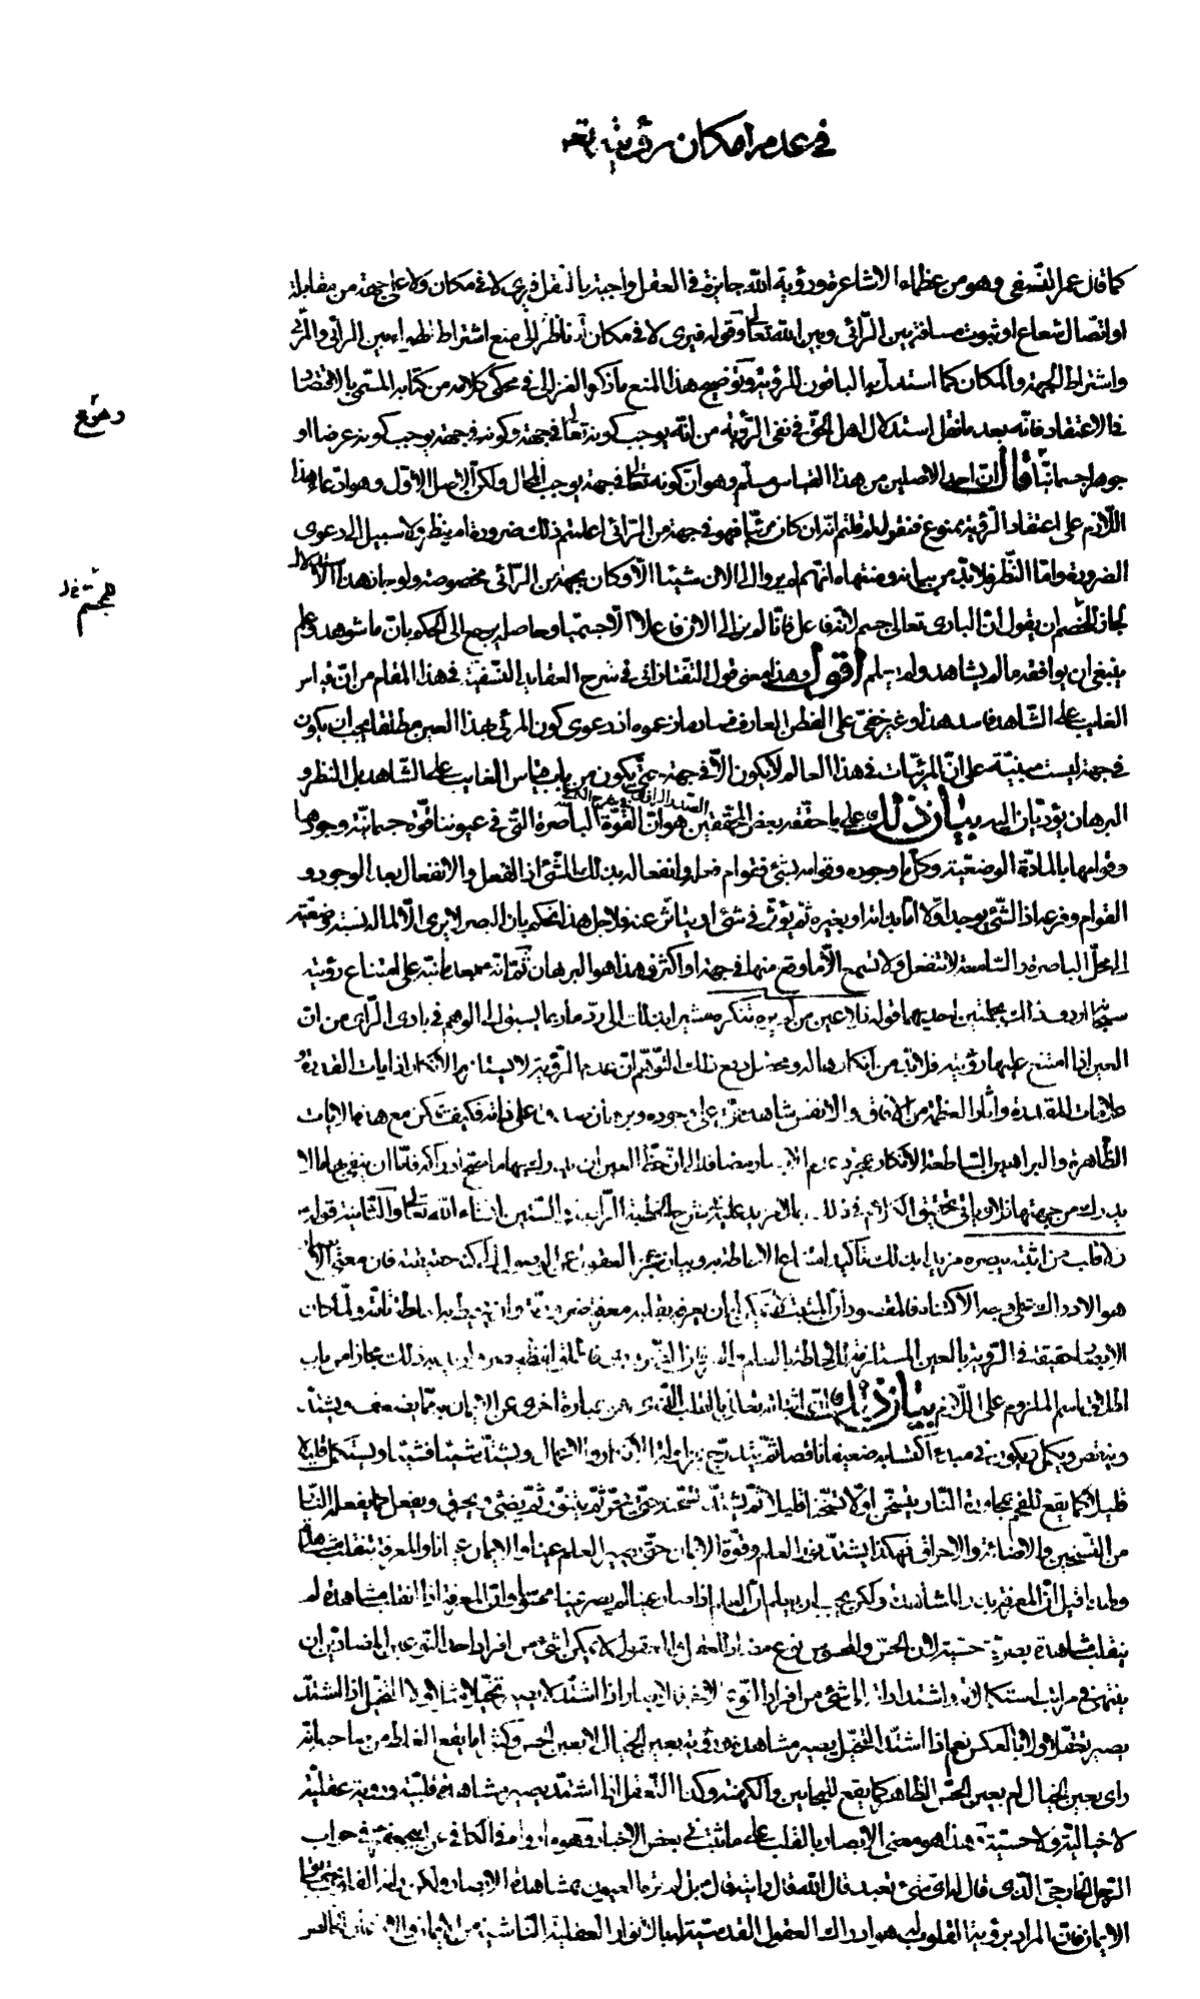 في عدم امكان رؤيته تعـ
كما قال عمر النّسفي وهو من عظماء الاشاعرة ورؤية الله جايزة في العقل واجبة بالنقل فيرى لا في مكان ولا على جهة من مقابلة
او اتّصال شعاع او ثبوت مسافة بين الرّائي وبين الله تعالى وقوله فيرى لا في مكان آه ناظر الى منع اشتراط بين الرائي والمرئي
واشتراط الجهة والمكان كما استدلّ به النافون للرؤية وتوضيح هذا المنع ما ذكره الغزالي في محكي كلامه من كتابه المسمّى بالاقتصاد
وهو ع
في الاعتقاد فانّه بعد ما نقل استدلال اهل الحقّ في نفي الرّؤية من انّه يوجب كونه تعالى في جهة وكونه في جهة يوجب كونه عرضا او
جوهرا جسمانيّا قال انّ احد الاصلين من هذا القياس مسلّم وهو انّ كونه تعالى في جهة يوجب المحال ولكنّ الاصل الاوّل وهو ادّعاء هذا
اللّازم على اعتقاد الرّؤية ممنوع فنقول لم قلتم انّه ان كان مرئيّا فهو في جهة من الرّائي اعلمتم ذلك ضرورة ام بنظر ولا سبيل الى دعوى
الضرورة وامّا النّظر فلا بدّ من بيانه ومنتهاه انهم لم يروا الى الان شيئا الّا وكان بجهة من الرّائي مخصوصة ولو جاز هذا الاستدلال
للمجسّم خ ل
لجاز للخصم ان يقول انّ الباري تعالى جسم لانّه فاعل فانّا لم نر الى الان فاعلا الّا جسما وحاصله يرجع الى الحكم بانّ ما شوهد وعلم
ينبغي ان يوافقه ما لم يشاهد ولم يعلم اقول وهذا معنى قول التفتازاني في شرح العقايد النّسفيّة في هذا المقام من انّ قياس
الغايب على الشّاهد فاسد هذا وغير خفيّ على الفطن العارف فساد ما زعموه اذ دعوى كون المرئي بهذا العين مطلقا يجب ان يكون
في جهة ليست مبنيّة على انّ المرئيّات في هذا العالم لا يكون الّا في جهة حتّى يكون من باب قياس الغايب على الشّاهد بل النظر و
البرهان يؤدّيان اليه بيان ذلك على ما حقّقه بعض المحقّقين هو انّ القوّة الباصرة الّتي في عيوننا قوّة جسمانيّة وجودها
وقوامها بالمادّة الوضعيّة وكلّ ما وجوده وقوامه بشيء فقوام فعله وانفعاله بذلك الشّيء اذ الفعل والانفعال بعد الوجود و
القوام وفرعه اذ الشّيء يوجد اوّلا امّا بذاته او بغيره ثمّ يؤثّر في شيء او يتاثّر عنه فلاجل هذا نحكم بان البصر لا يرى الّا لما له نسبة وضعيّة
الى محلّ الباصرة والسّامعة لا تنفعل ولا تسمع الّا ما وقع منها في جهة او اكثر وهذا هو البرهان ثمّ انّه بعد ما نبّه على امتناع رؤيته
سبحانه اردف ذلك بجملتين احديهما قوله فلا عين من لم يره تنكره مشيرا بذلك الى ردّ ما ربما يسبق الى الوهم في بادي الرّاى من انّ
العين اذا امتنع عليها رؤيته فلا بدّ من انكارها له ومحصّل دفع ذلك التّوهّم انّ عدم الرّؤية لا يستلزم الانكار اذ ايات القدرة و
علامات المقدرة واثار العظمة من الافاق والانفس شاهدة على وجوده وبرهان على ذاته فكيف يمكن مع هذه الايات
الظّاهرة والبراهين السّاطعة الانكار بمجرّد عدم الابصار مضافا الى انّ حظّ العين ان يدرك بها ما صحّ ادراكه فامّا ان ينفي بها ما لا
يدرك من جهتها فلا وياتي تحقيق الكلام في ذلك بما لا مزيد عليه في شرح الخطبة انشاء الله تعالى والثّانية قوله
ولا قلب من اثبته يبصره مزيدا بذلك تاكيد امتناع الاحاطة به وبيان عجز العقول عن الوصول الى ادراك كنه حقيقته فان معنى الابصار
هو الادراك على وجه الاكتناه فالمقصود انّ المثبت له لا يمكن ان يعرفه
الابصار حقيقة في الرّؤية بالعين المستلزمة للاحاطة بالمبصر ذلك مجازا من باب
اطلاق اسم الملزوم على اللّازم بيان ذلك انّ اثباته تعالى بالقلب الّذي هو عبارة اخرى عن الايمان به ممّا يضعف ويشتدّ
وينقص ويكمل ويكون في مبدء اكتسابه ضعيفا ناقصا ثمّ يتدرّج ويشتدّ شيئا فشيئا ويستكمل قليلا
قليلا كما يقع للفحم بمجاورة النّار يتسخّن اوّلا تسخّنا قليلا ثمّ يشتدّ تسخّنه حتّى يحمرّ ثمّ يتنوّر ثمّ يضيء ويحرق ويفعل كما يفعل النّار
من التّسخين والاضائة والاحراق فهكذا يشتدّ نور العلم وقوّة الايمان حتّى يصير العلم عينا والايمان عيانا والمعرفة تنقلب مشاهدة
ولهذا قيل انّ المعرفة بذر المشاهدة ولكن يجب ان يعلم انّ العلم اذا صار عينا لم يصر عينا محسوسا وانّ المعرفة اذا انقلبت مشاهدة لم
ينقلب مشاهدة بصريّة حسّية لانّ الحسّ والمحسوس نوع مضادّ للعقل والمعقول لا يمكن لشيء من افراد احد النّوعين المتضادّين ان
ينتهي في مراتب استكمالاته واشتداداته الى شيء من افراد النّوع الاخر فالابصار اذا اشتدّ لا يصير تخيّلا مثلا ولا التّخيّل اذا اشتدّ
يصير تعقّلا ولا بالعكس نعم اذا اشتدّ التّخيّل يصير مشاهدة ورؤية بعين الخيال لا بعين الحسّ وكثيرا ما يقع الغلط من صاحبه انّه
راى بعين الخيال ام بعين الحسّ الظّاهر كما يقع للمجانين والكهنة وكذا التّعقّل اذا اشتدّ يصير مشاهدة قلبيّة ورؤية عقليّة
لا خياليّة ولا حسّيّة هذا هو معنى الابصار بالقلب على ما ثبت في بعض الاخبار وهو ما رواه في الكافي عن ابي جعفر في جواب
الرّجل الخارجيّ الّذي قال له اىّ شيء تعبد قال الله قال رايته قال بل لم تره العيون بمشاهدة الابصار ولكن راته القلوب بحقايق
الايمان فانّ المراد برؤية القلوب له هو ادراك العقول القدسيّة له بالانوار العقليّة النّاشية من الايمان